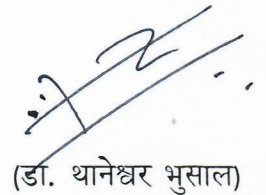 (डा. थानेश्वर भुसाल)